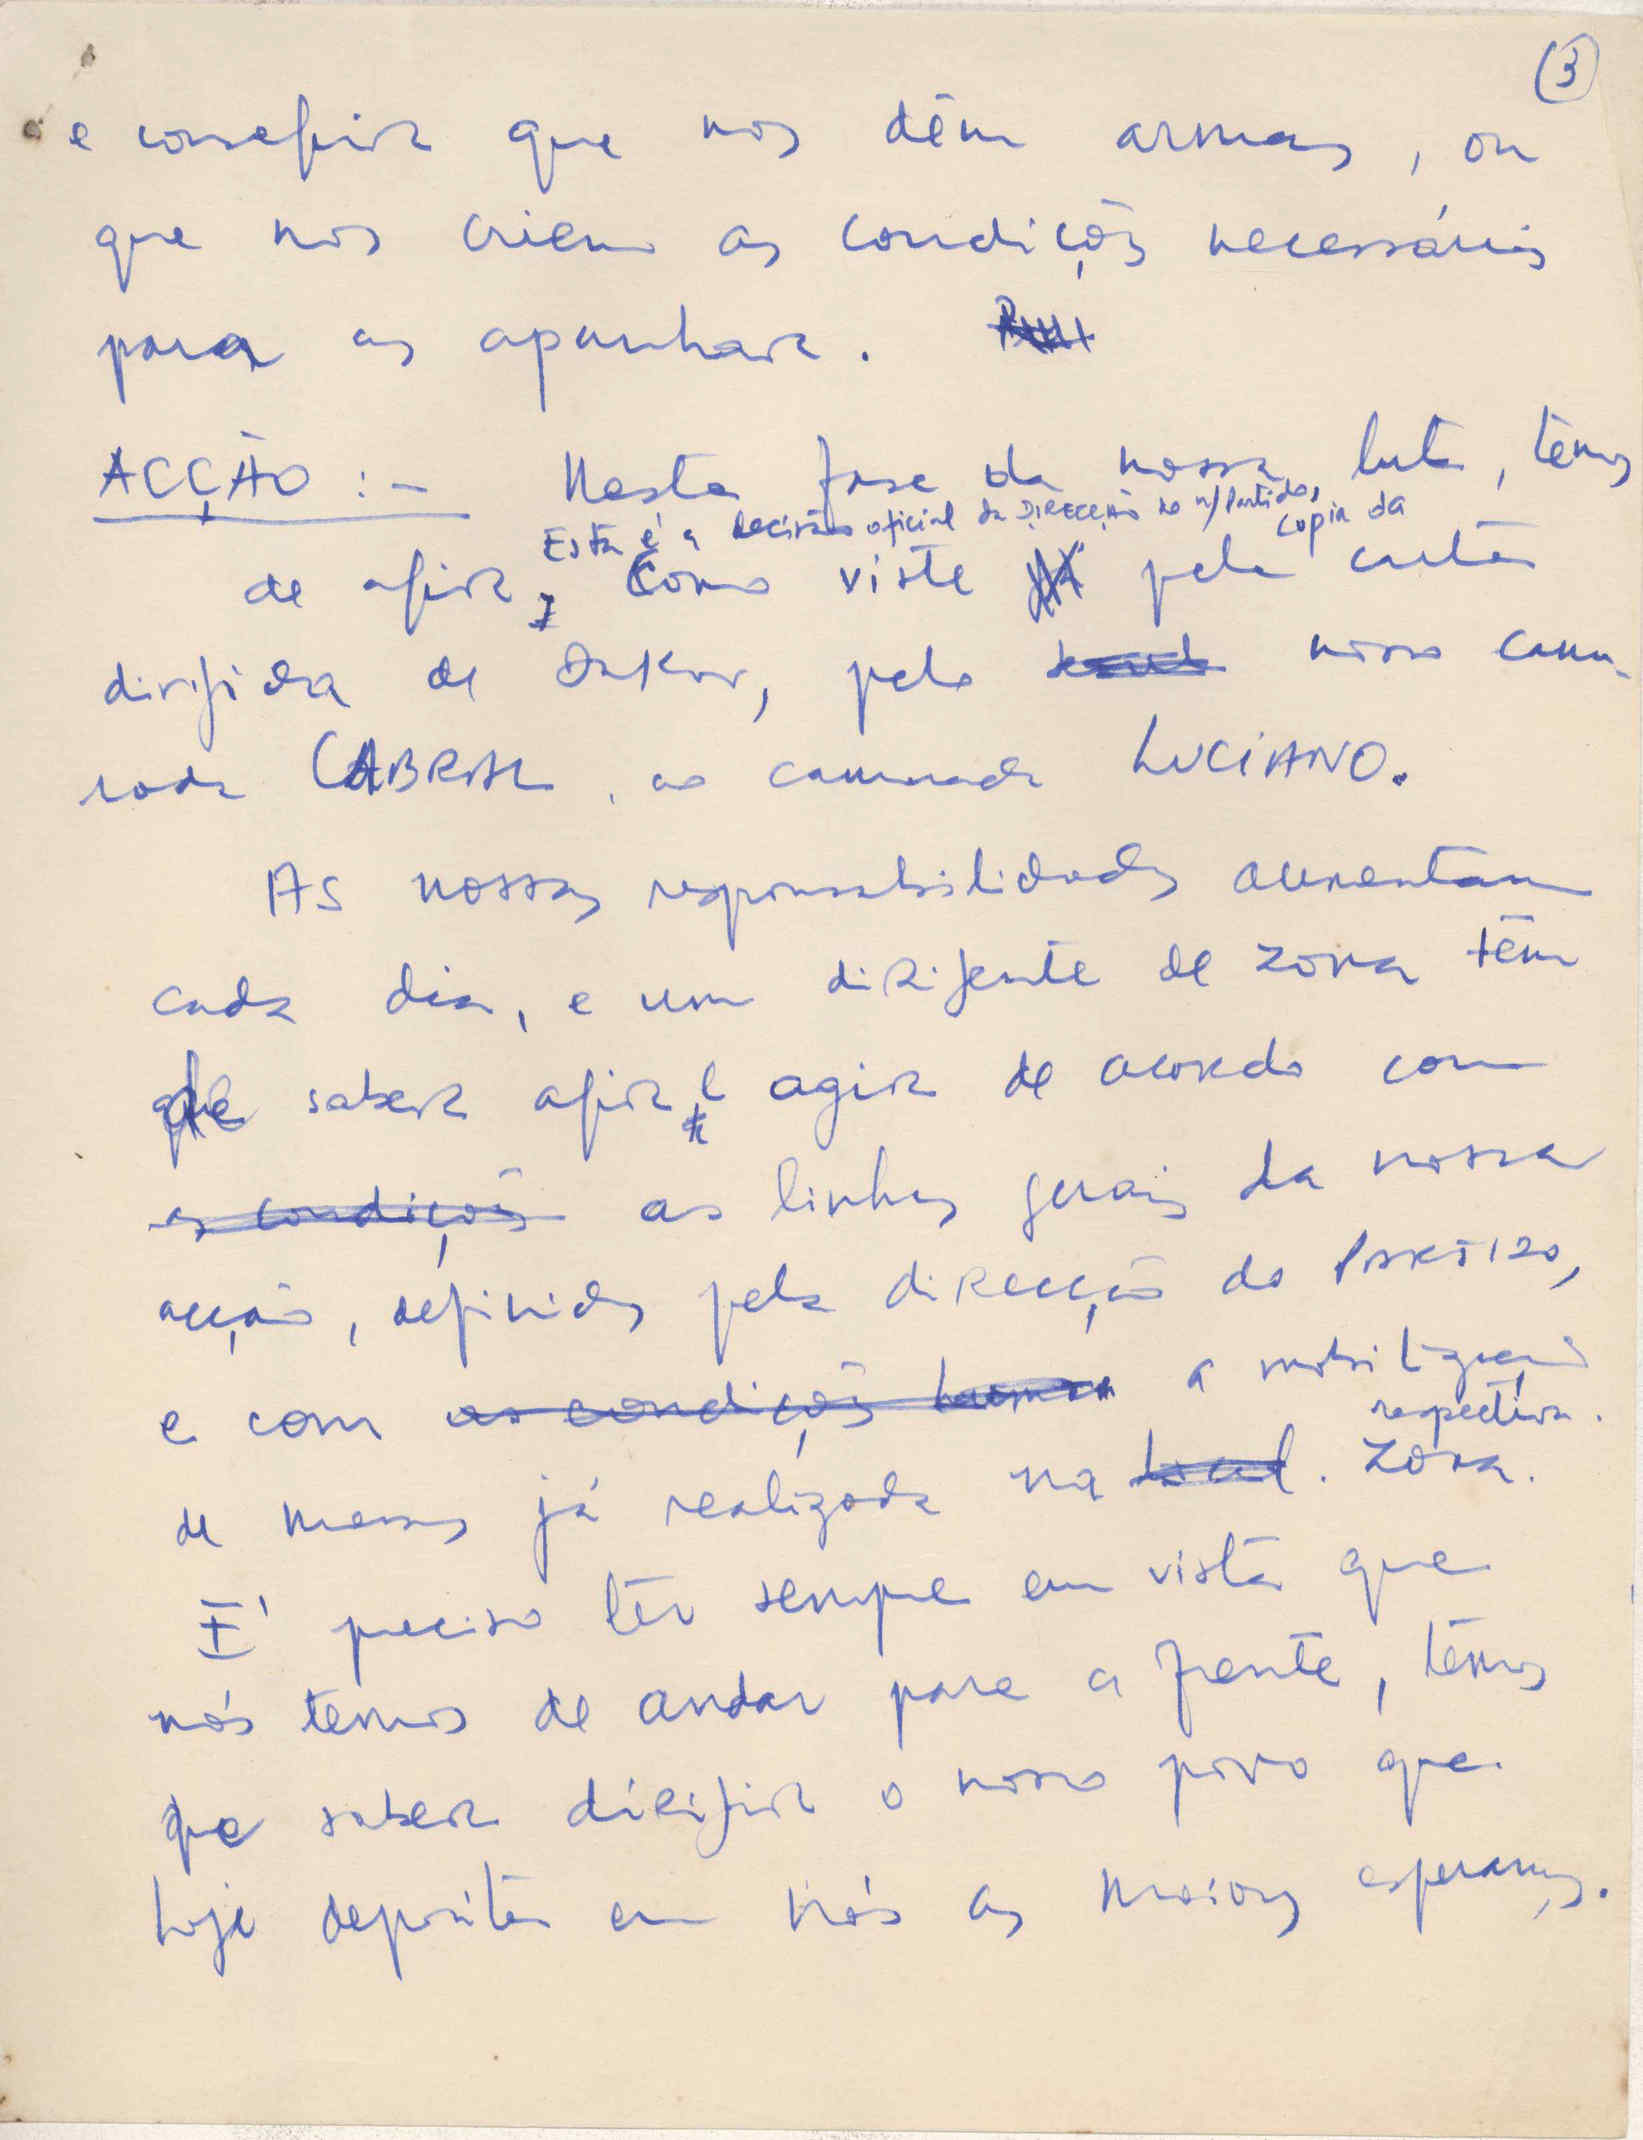 (3)
e conseguir que nos dêm armas, ou
que nos criem as condições necessárias
para as apanhar.
ACÇÃO :- Nesta fase da nossa luta, têmos
Esta é a decisão oficial da DIRECÇÃO do n/Partido, copia da
de agir, Como viste pela carta
dirigida de Dakar, pelo nosso cama-
rada CABRAL, ao camarada LUCIANO.
As nossas responsabilidades aumentam
cada dia, e um dirigente de zona têm
que saber agir, e agir de acordo com
as condições as linhas gerais da nossa
acção, definidas pela direcção do PARTIDO,
e com as condições a mobilização
respectiva.
de massas já realizada na local. Zona.
É preciso têr sempre em vista que
nós temos de andar para a frente, têmos
que saber dirigir o nosso povo que
hoje deposita em nós as maiores esperanças.